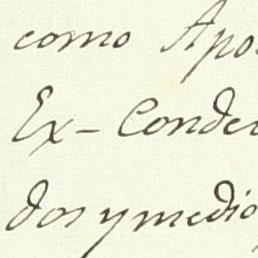 como Apo
Ex- Conde
dos y medio